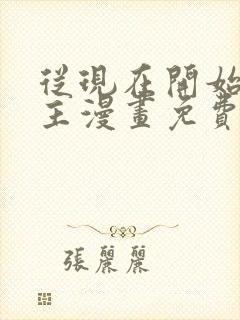 從現在開始
王漫畫免費
張麗麗